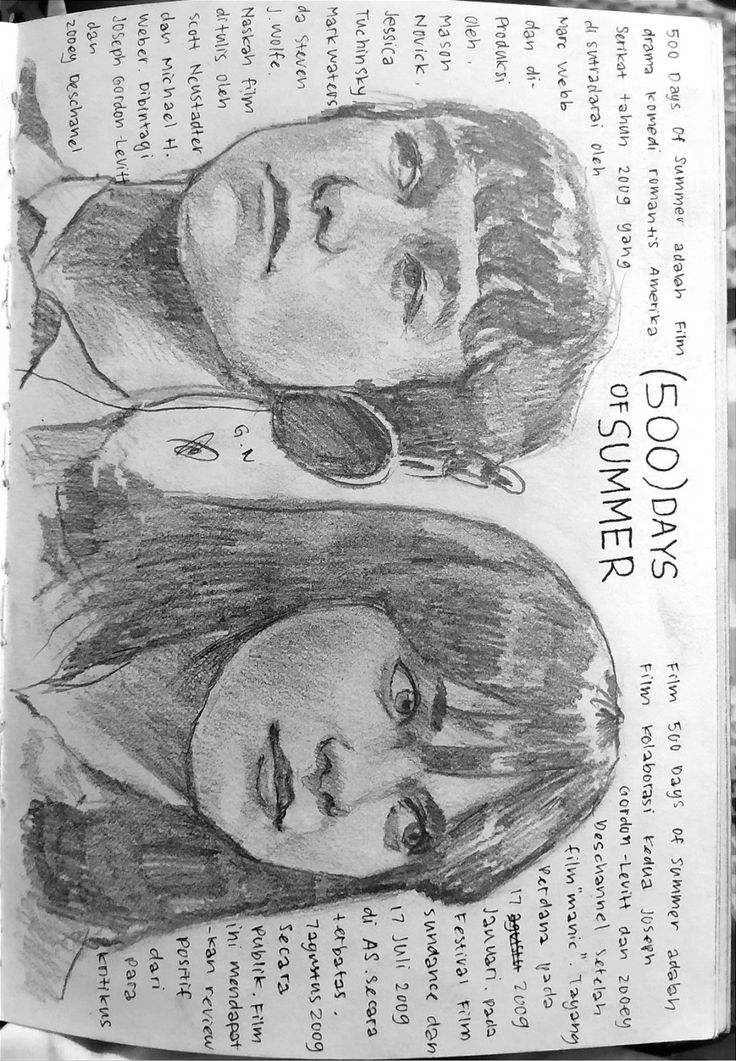 500 Days Of Summer adalah Film
drama komedi romantis Amerika
Serikat tahun 2009 yang
di sutradarai oleh
Marc Webb
dan di-
Produksi
oleh ,
Mason
Novick,
Jessica
Tuchinsky
Mark Waters
da Steven
J. Wolfe.
Naskah film
ditulis oleh
Scott Neustadter
dan Michael H.
Weber. Dibintagi
Joseph Gordon-Levitt
dan
Zooey Deschanel
(500) DAYS
OF SUMMER
G.N
Film 500 Days of Summer adalah
Film kolaborasi kedua Joseph
Gordon-Levitt dan Zooey
Deschannel setelah
film "manic". Tayang
Perdana pada
17 2009
Januari. pada
Festival Film
sundance dan
17 Juli 2009
di AS. secara
terbatas.
7 agustus 2009
secara
publik. Film
ini mendapat
-kan review
positif
dari
para
kritikus